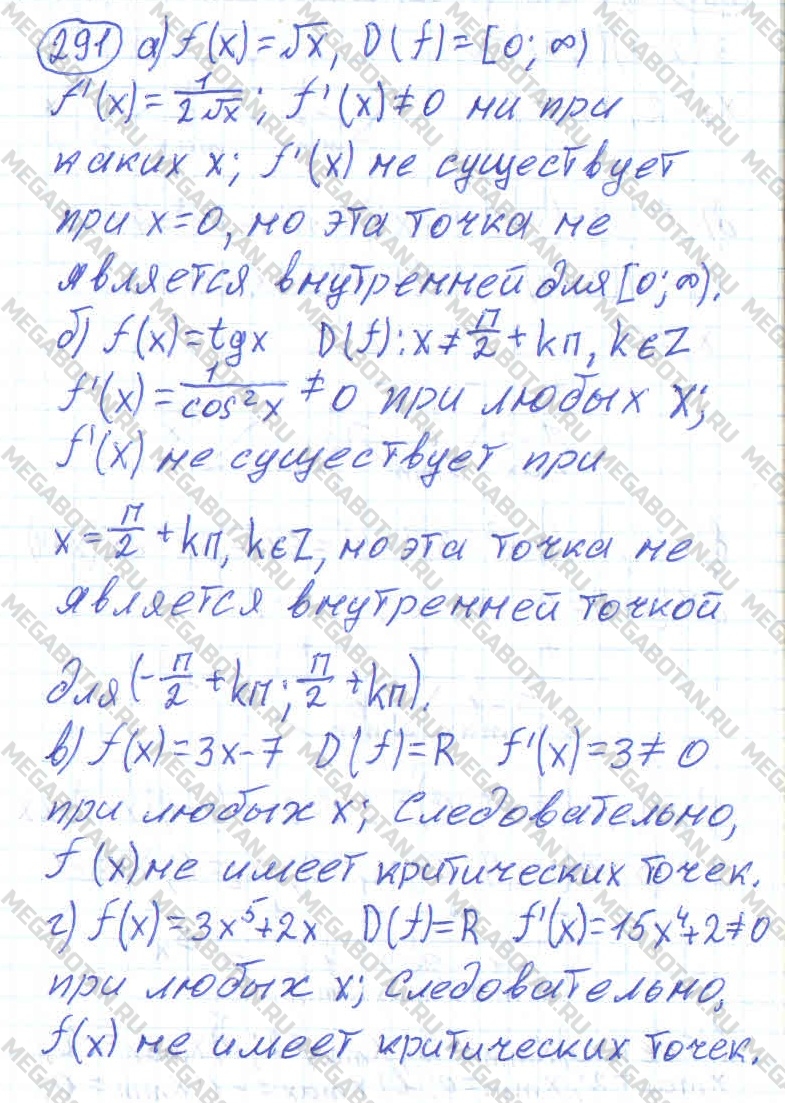 291 а) f(x)=√x, D(f)=[0; ∞)
f'(x)=1/(2√x); f'(x)≠0 ни при
каких x; f'(x) не существует
при x=0, но эта точка не
является внутренней для [0; ∞).
б) f(x)=tgx D(f): x≠π/2+kπ, k∈Z
f'(x)=1/cos²x ≠0 при любых x;
f'(x) не существует при
x=π/2+kπ, k∈Z, но эта точка не
является внутренней точкой
для (-π/2+kπ; π/2+kπ).
в) f(x)=3x-7 D(f)=R f'(x)=3≠0
при любых x; Следовательно,
f(x) не имеет критических точек.
г) f(x)=3x⁵+2x D(f)=R f'(x)=15x⁴+2≠0
при любых x; Следовательно,
f(x) не имеет критических точек.
MEGABOTAN.RU